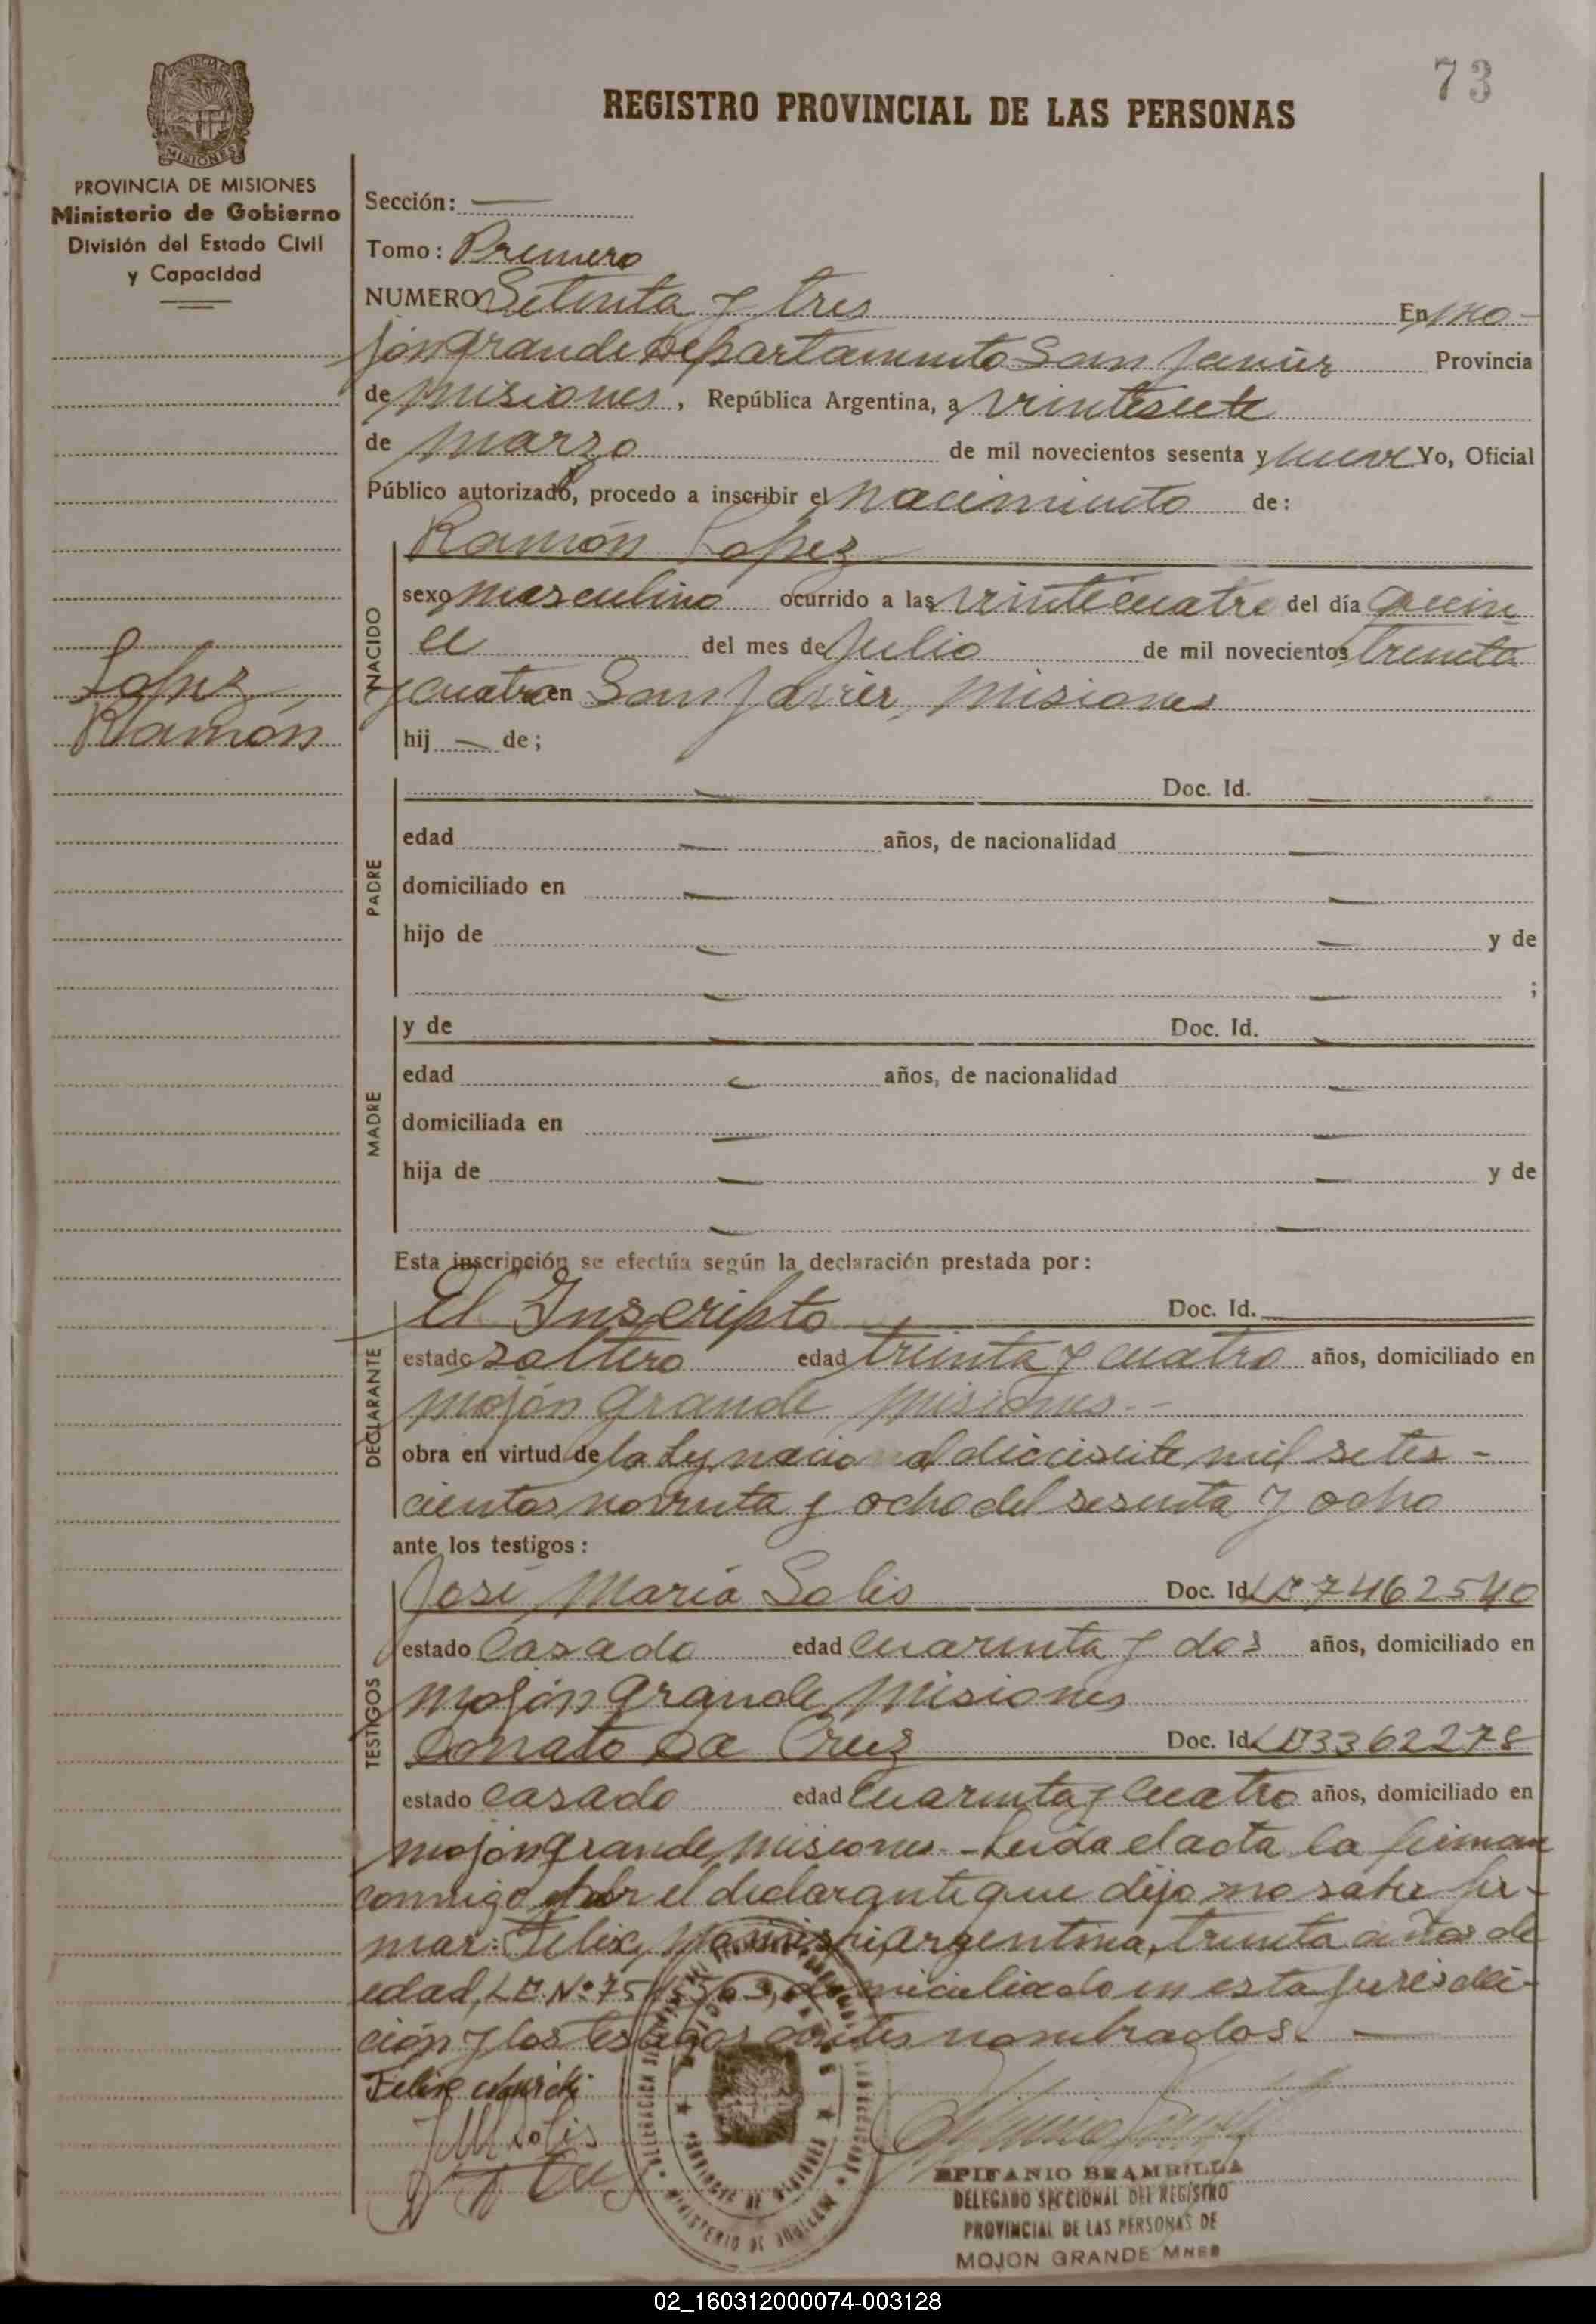 73
REGISTRO PROVINCIAL DE LAS PERSONAS
PROVINCIA DE MISIONES
Ministerio de Gobierno
División del Estado Civil
y Capacidad
Sección: —
Tomo: Primero
NUMERO Setenta y tres En Mo-
jón grande Departamento San Javier Provincia
de Misiones, República Argentina, a veintisiete
de marzo de mil novecientos sesenta y nueve Yo, Oficial
Público autorizado, procedo a inscribir el nacimiento de:
Ramón Lopez
NACIDO
sexo masculino ocurrido a las veinticuatro del día quin
ce del mes de Julio de mil novecientos treinta
y cuatro en San Javier, Misiones
hij — de;
Lopez
Ramón
PADRE
— Doc. Id. —
edad — años, de nacionalidad —
domiciliado en — —
hijo de — — y de
— — ;
MADRE
y de — Doc. Id. —
edad — años, de nacionalidad —
domiciliada en — —
hija de — — y de
— —
Esta inscripción se efectúa según la declaración prestada por:
DECLARANTE
El Inscripto Doc. Id.
estado soltero edad treinta y cuatro años, domiciliado en
mojón grande misiones.--
obra en virtud de la Ley nacional diecisiete mil setes-
cientos noventa y ocho del sesenta y ocho
ante los testigos:
TESTIGOS
José María Solis Doc. Id. LE 7462540
estado casado edad cuarenta y dos años, domiciliado en
mojón grande, misiones
Conato Da Cruz Doc. Id. LE 3362278
estado casado edad cuarenta y cuatro años, domiciliado en
mojón grande, misiones - Leida el acta la firman
conmigo por el declarante que dijo no saber fir-
mar: Felix argentina, treinta años de
edad, LE. Nº domiciliado en esta jurisdic-
ción y los testigos antes nombrados. —
Felix
JM Solis
EPIFANIO BRAMBILLA
DELEGADO SECCIONAL DEL REGISTRO
PROVINCIAL DE LAS PERSONAS DE
MOJON GRANDE MNES
PROVINCIA DE MISIONES
02_160312000074-003128